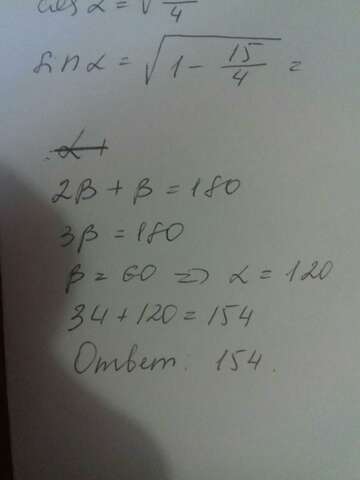 cos α = √ 4
sin α = √1 - 15/4 =
2β + β = 180
3β = 180
β = 60 => α = 120
34 + 120 = 154
Ответ: 154.